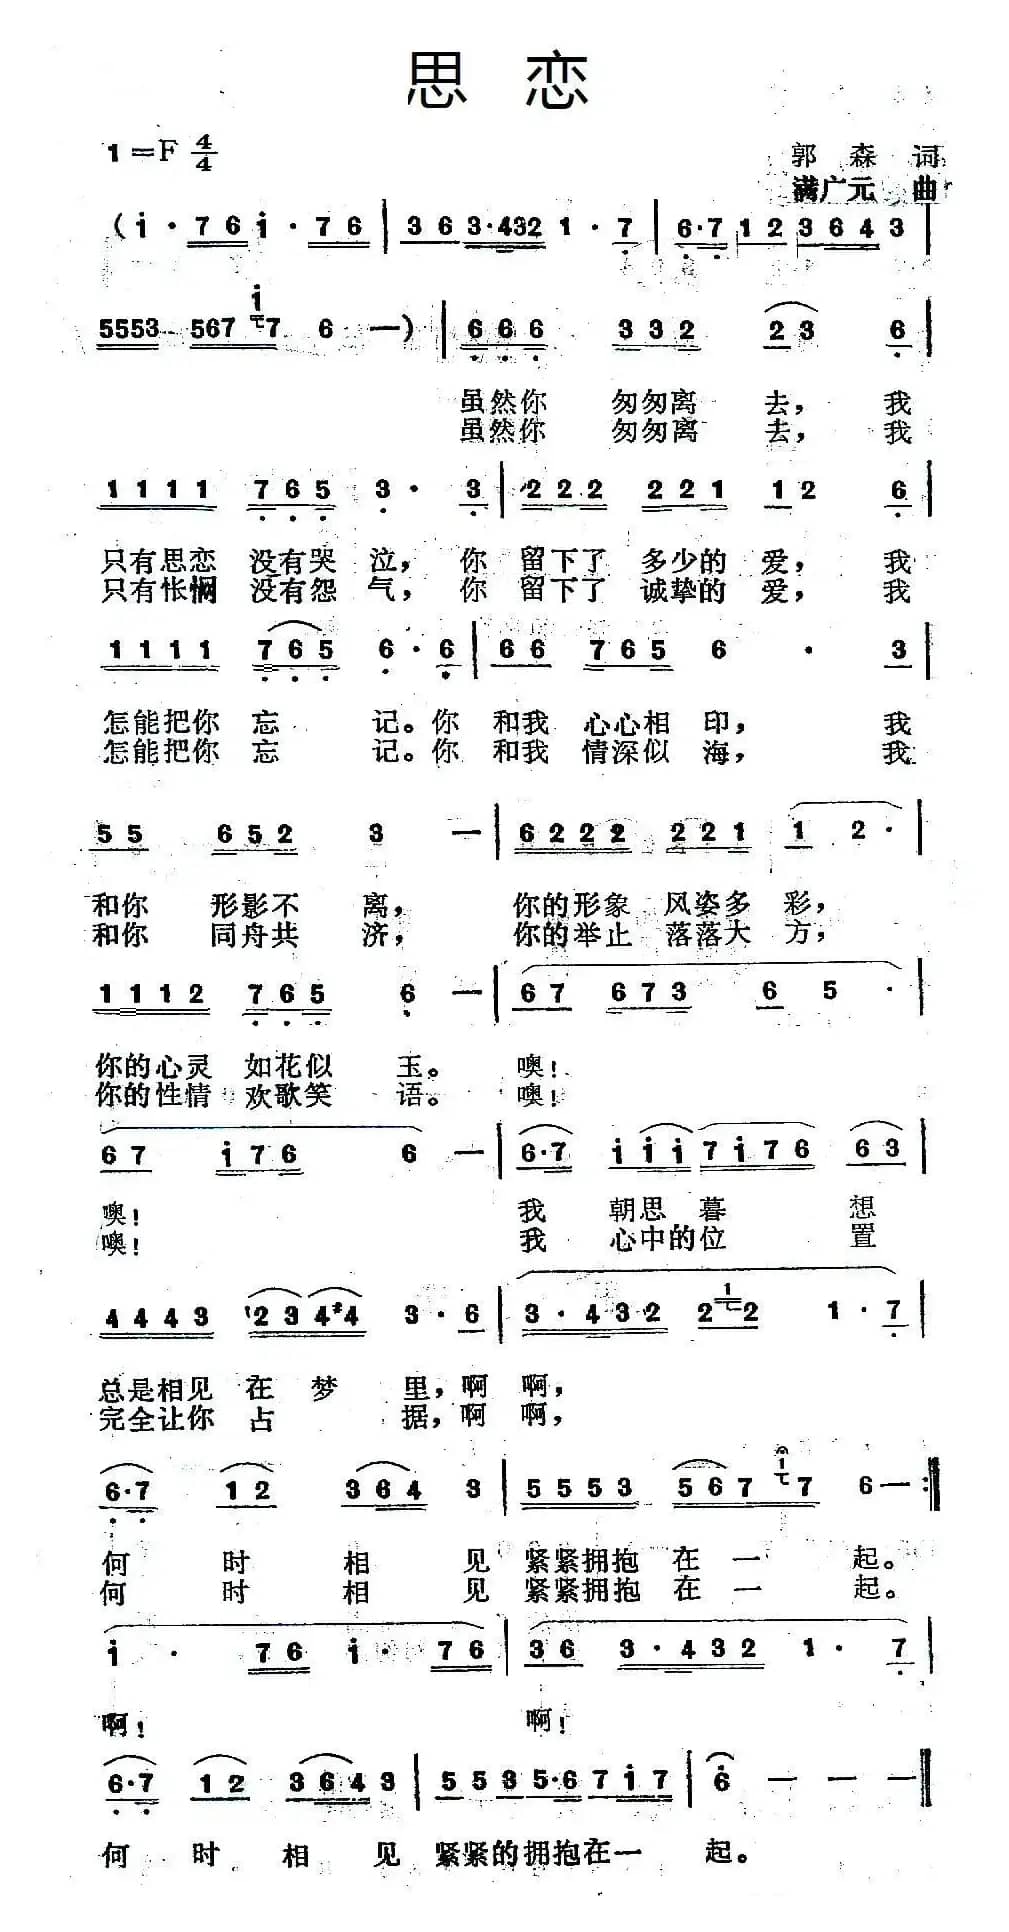 思 恋
1=F 4/4
郭 森 词
满广元 曲
(i· 76 i· 76 | 36 3·432 1· 7 | 6·7 12 364 3 |
5553 567 1 7 6 —) | 666 332 23 6 |
虽然你 匆匆离 去，我
虽然你 匆匆离 去，我
1111 765 3· 3 | 222 221 12 6 |
只有思恋 没有哭 泣，你 留下了 多少的 爱，我
只有怅惘 没有怨 气，你 留下了 诚挚的 爱，我
1111 765 6· 6 | 66 765 6 · 3 |
怎能把你 忘 记。你 和我 心心相 印，我
怎能把你 忘 记。你 和我 情深似 海，我
55 652 3 — | 6222 221 1 2· |
和你 形影不 离，你的形象 风姿多 彩，
和你 同舟共 济，你的举止 落落大 方，
1112 765 6 — | 67 673 6 5 · |
你的心灵 如花似 玉。噢！
你的性情 欢歌笑 语。噢！
67 i76 6 — | 6·7 iii7i76 63 |
噢！ 我 朝思 暮 想
噢！ 我 心中的位 置
4443 234#4 3· 6 | 3·432 2 1 2 1· 7 |
总是相见 在 梦 里，啊 啊，
完全让你 占 据，啊 啊，
6·7 12 364 3 | 5553 567 1 7 6— :‖
何 时 相 见 紧紧拥抱 在 一 起。
何 时 相 见 紧紧拥抱 在 一 起。
i · 76 i· 76 | 36 3·432 1· 7 |
啊！ 啊！
6·7 12 364 3 | 553 5·6 7i7 | 6 — — — ‖
何 时 相 见 紧紧的拥抱在一 起。